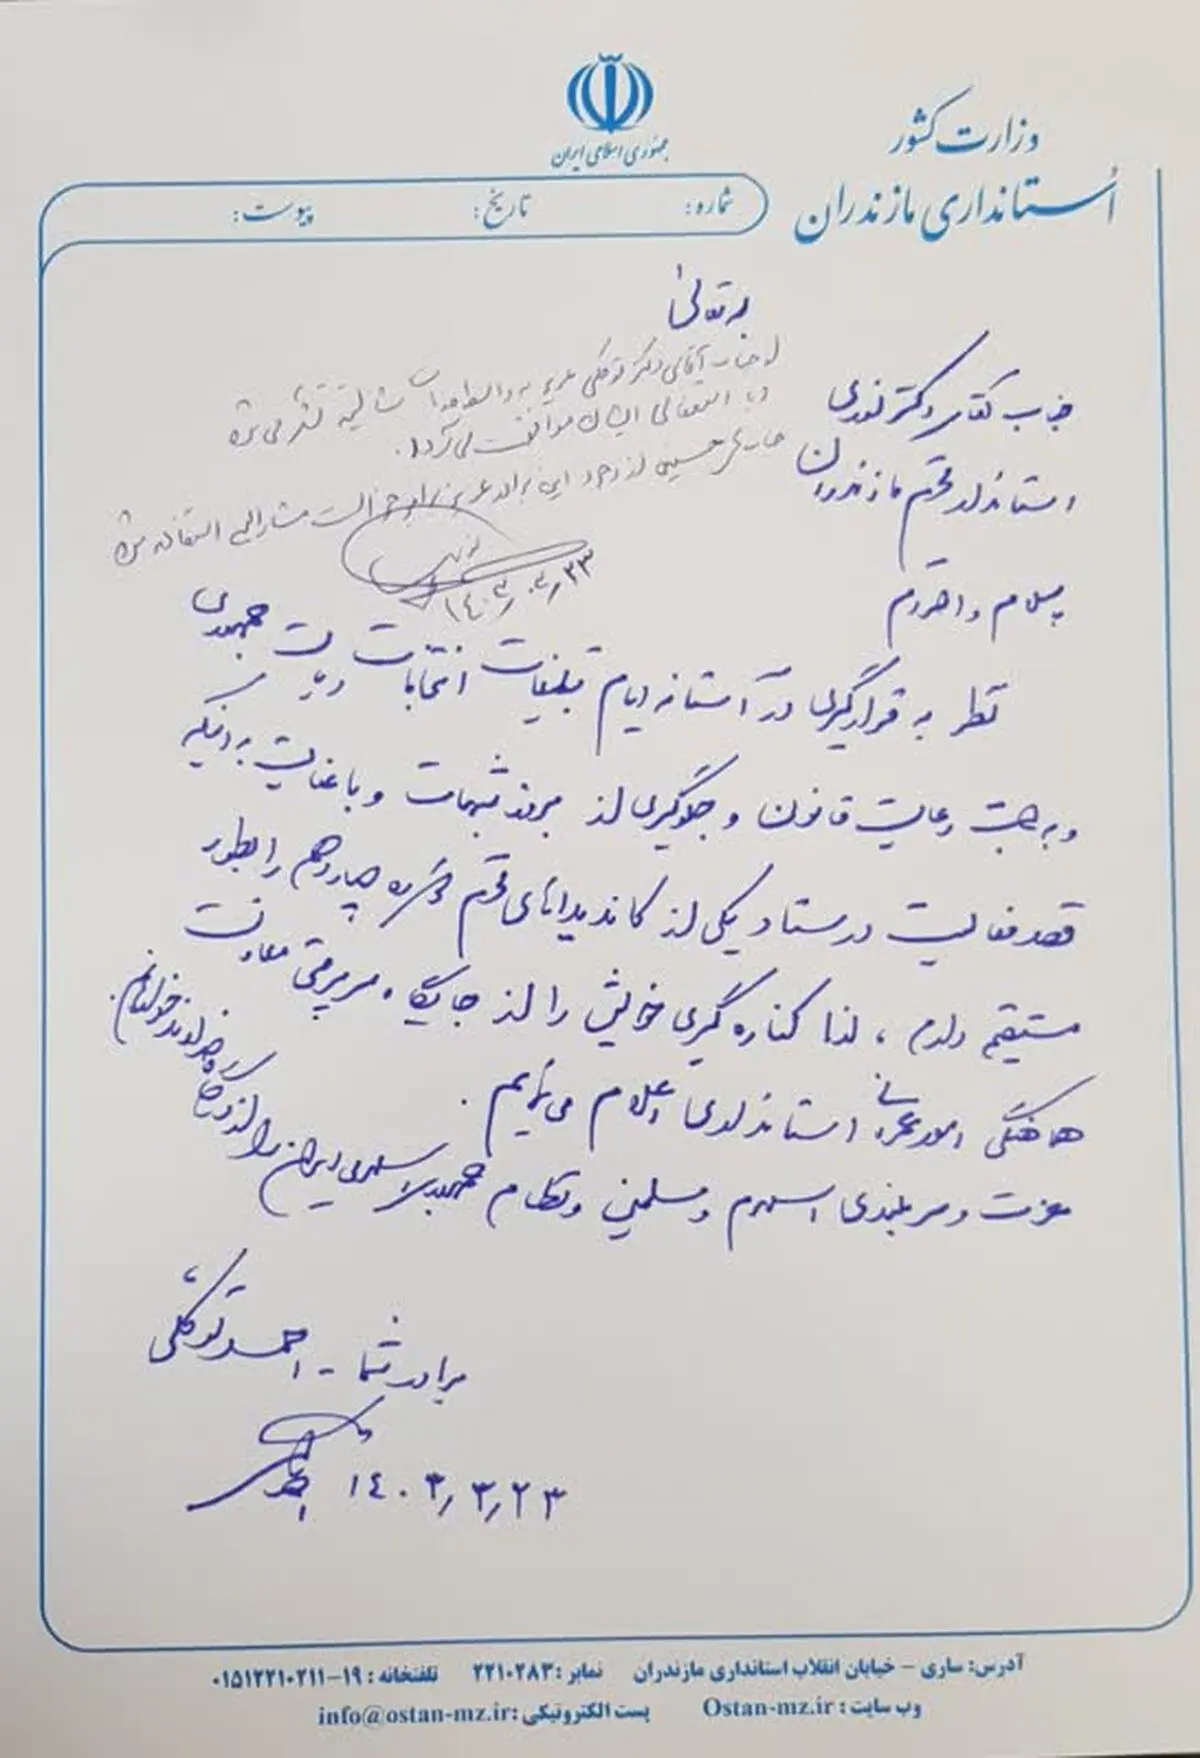 جمهوری اسلامی ایران
وزارت کشور
اُستانداری مازندران
شماره: تاریخ: پیوست:
جناب آقای دکتر توکلی عزیز شما
با استعفای ایشان موافقت می گردد.
حسینی از وجود این برادر عزیز استفاده
۱۴۰۳٫۰۳٫۲۳
جناب آقای دکتر نوری
استاندار محترم مازندران
سلام و احترام
نظر به قرارگیری در آستانه ایام تبلیغات انتخابات ریاست جمهوری
و به جهت رعایت قانون و جلوگیری از بروز شبهات و با عنایت به اینکه
قصد فعالیت در ستاد یکی از کاندیداهای محترم دوره چهاردهم را بطور
مستقیم دارم ، لذا کناره گیری خویش را از جایگاه سرپرستی معاونت
هماهنگی امور عمرانی استانداری اعلام می نمایم .
عزت و سربلندی اسلام و مسلمین و نظام جمهوری اسلامی ایران را از درگاه خداوند خواهانم.
برادر شما - احمد توکلی
۱۴۰۳٫۳٫۲۳
آدرس: ساری - خیابان انقلاب استانداری مازندران نمابر : ۲۲۱۰۲۸۳ تلفنخانه : ۱۹-۰۱۵۱۲۲۱۰۲۱۱
وب سایت : Ostan-mz.ir پست الکترونیکی : info@ostan-mz.ir